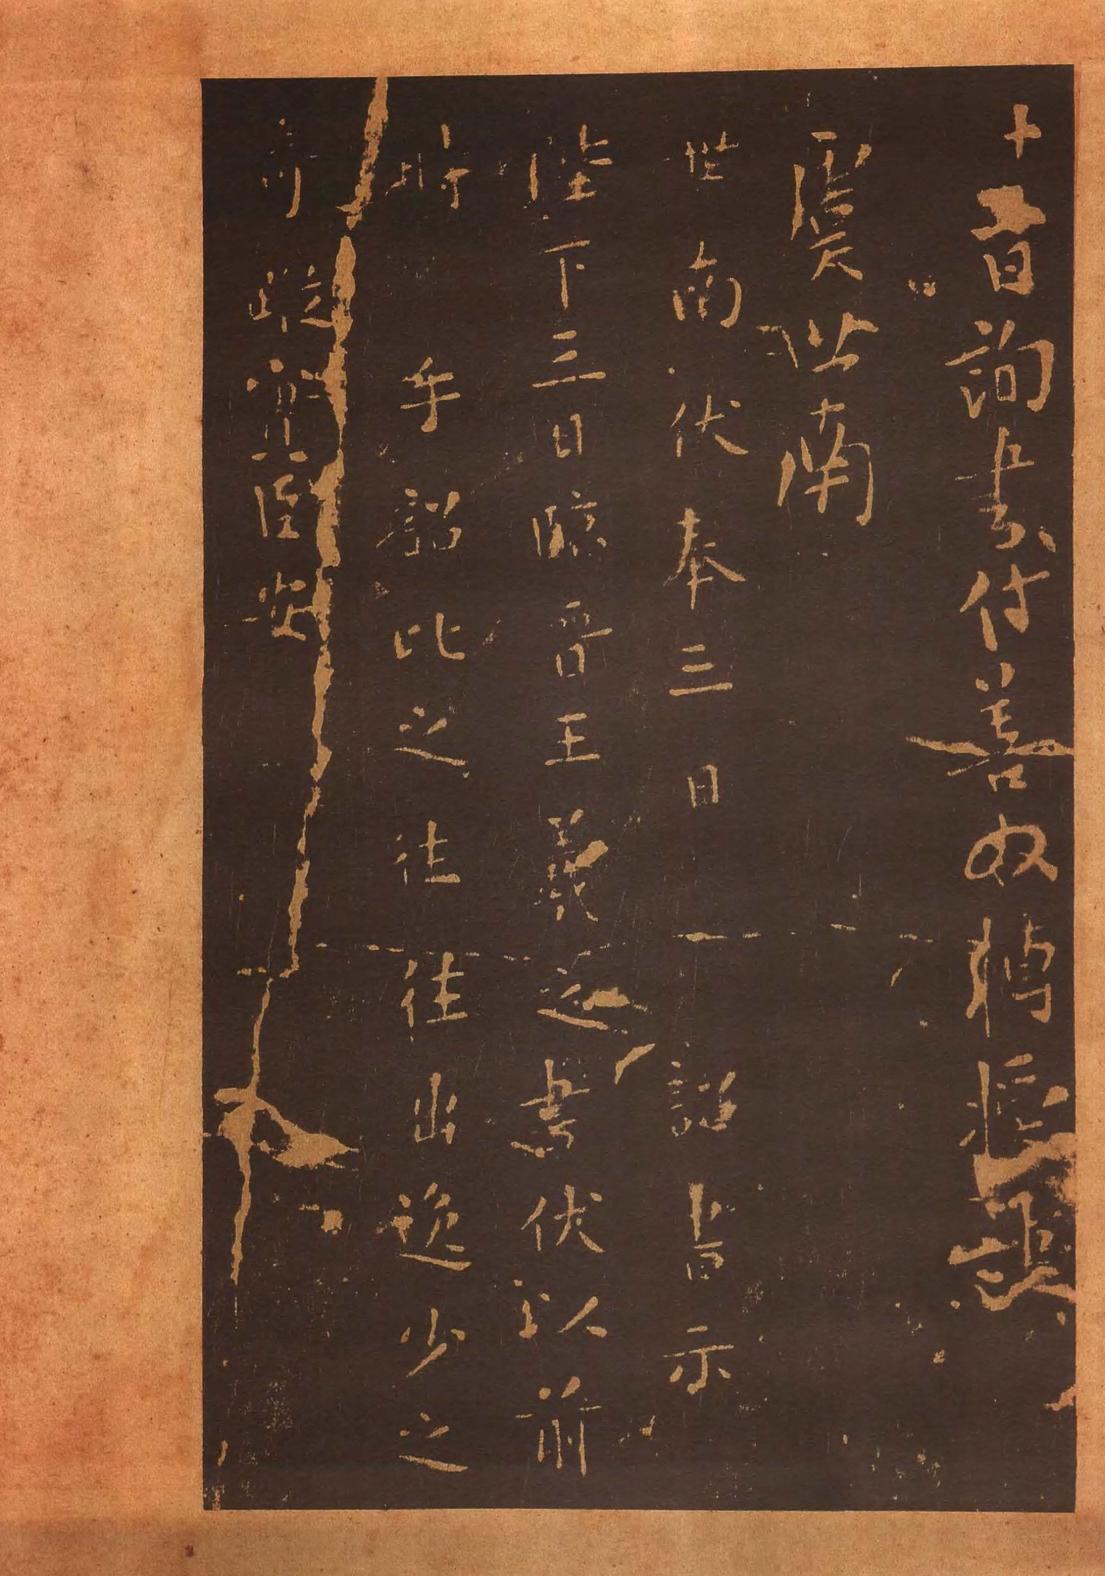 十二日詢書付善奴授
虞世南
世南伏奉三日詔書示
陛下三日臨晉王羲之書伏以前
時手詔比之往往出逸少之
蹤實臣